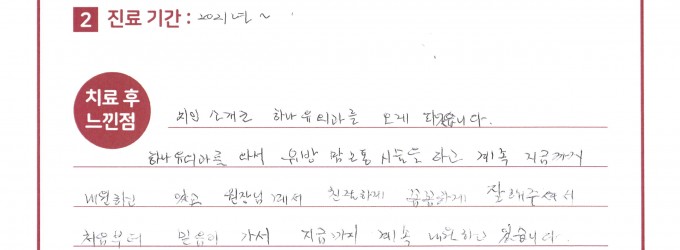 2 진료 기간 : 2021년 ~
치료 후
느낀점
지인 소개로 하나유외과를 오게 되었습니다.
하나유외과를 와서 유방 맘모톰 시술을 하고 계속 지금까지
내원하고 있고 원장님께서 친절하게 꼼꼼하게 잘해주셔서
처음부터 믿음이 가서 지금까지 계속 내원하고 있습니다.